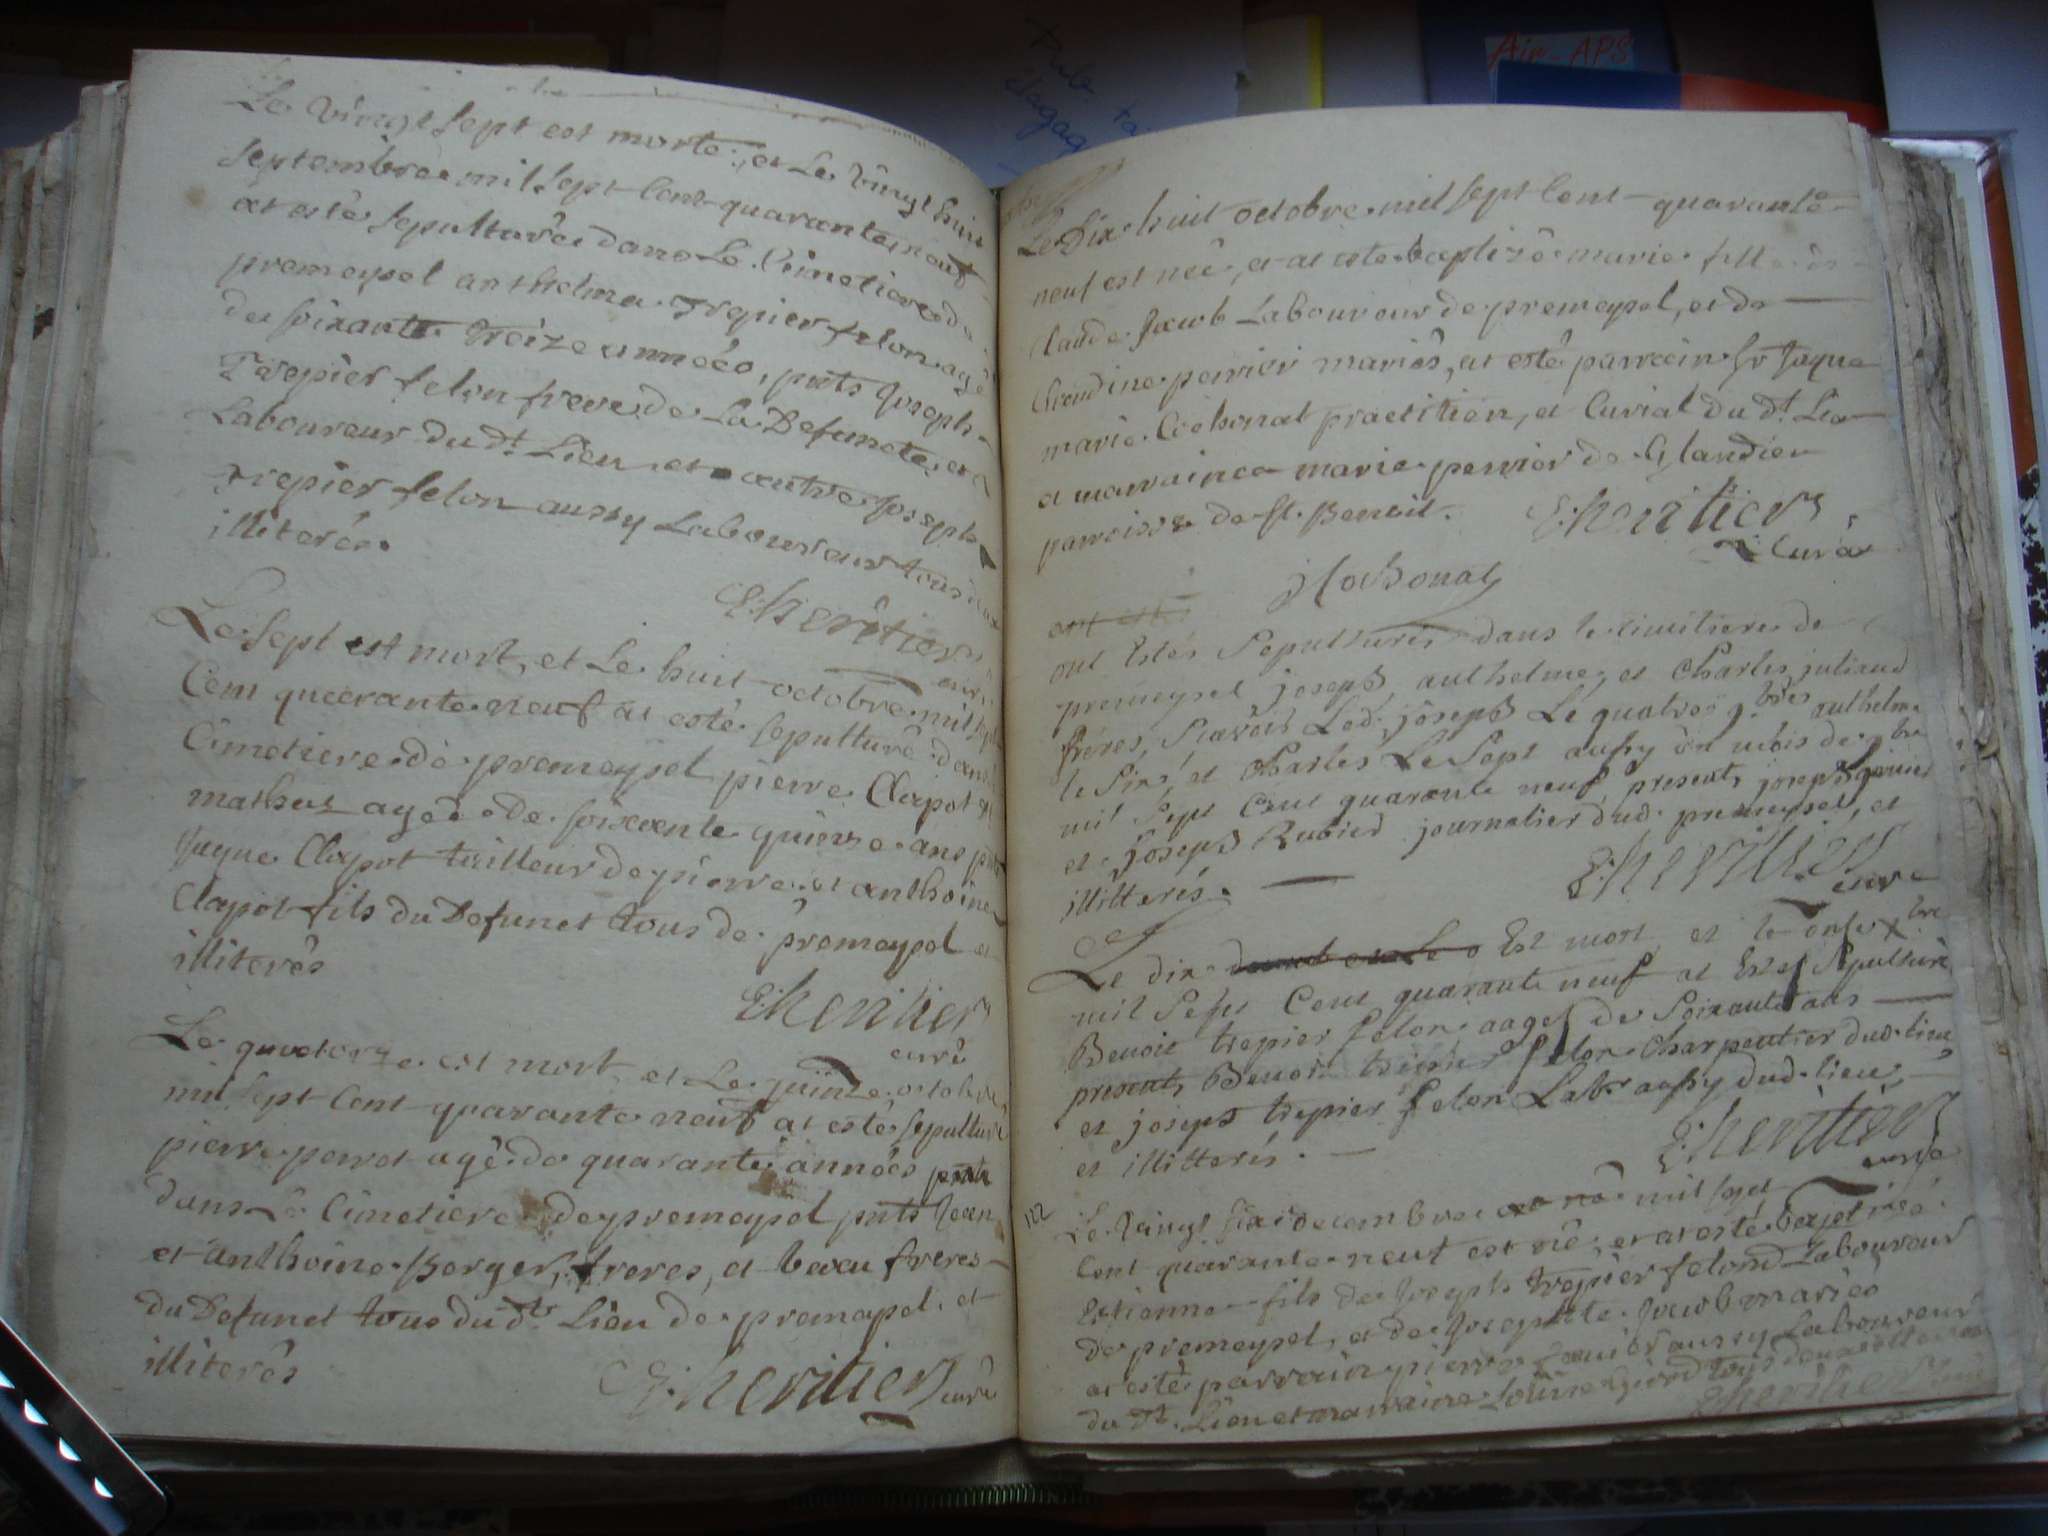 Le vingt sept est morte, et Le vingt huit
septembre mil sept Cent quarante neuf
at esté sepulturée dans Le Cimetiere de
premeysel anthelma Trepier felon agé
de soixante treize années, pnts Joseph
Trepier felon frere de La Defuncte, et
Laboureur du dt. Lieu et autre Joseph
Trepier felon aussy Laboureur tous deux
illiterés.
E: heritier
curé
Le sept est mort, et Le huit octobre mil sept
Cent quarante neuf at esté sepulturé dans
Cimetiere de premeysel pierre Clapot
mathieu agé de soixante quinze ans pnts
Jaque Clapot tailleur de pierre et anthoine
Clapot fils du Defunct tous de premeysel et
illiterés
E: heritier
curé
Le quatorze est mort, et Le quinze octobre
mil sept Cent quarante neuf at esté sepulturé
pierre perret agé de quarante années
dans Le Cimetiere de premeysel pnts Jean
et anthoine Berger, freres, et beau freres
du Defunct tous du dt. Lieu de premeysel et
illiterés
E: heritier curé
Le Dix huit octobre mil sept Cent quarante
neuf est neé, et at esté baptizée marie fille de
Claude Jacob Laboureur de premeysel, et de
Claudine perrier mariés, at esté parrain Sr Jaque
marie Cochonat practitien, et Curial du dt. Lieu
et marraine marie perrier de Glandieu
parroisse de St. Benoit. E: heritier
Curé
J Cochonat
ont estés
ont Estés Sepulturés dans le cimitiere de
premeysel joseph, anthelme, et Charles juliand
freres, Scavoir Led. joseph Le quatre 9.bre anthelme
le Six, et Charles Le Sept aussy du mois de 9bre
mil Sept Cent quarante neuf, presents joseph
et joseph Rubied journalier dud. premeysel, et
illitterés.
E: heritier
curé
Le dix Est mort, et le onse Xbre
mil Sept Cent quarante neuf at Esté Sepulturé
Benoit trepier felon aagé de Soixante ans
presents Benoit trepier felon Charpentier dud. lieu,
et joseph trepier felon Labr. aussy dud. lieu,
et illitterés.
E: heritier
curé
112
Le vingt six decembre mil sept
Cent quarante neuf est né, et at esté baptizé
Estienne fils de Joseph trepier felon Laboureur
de premeysel, et de Josephte Jacob mariés
at esté parrain pierre aussy Laboureur
du dt. Lieu et marraine
E: heritier Curé